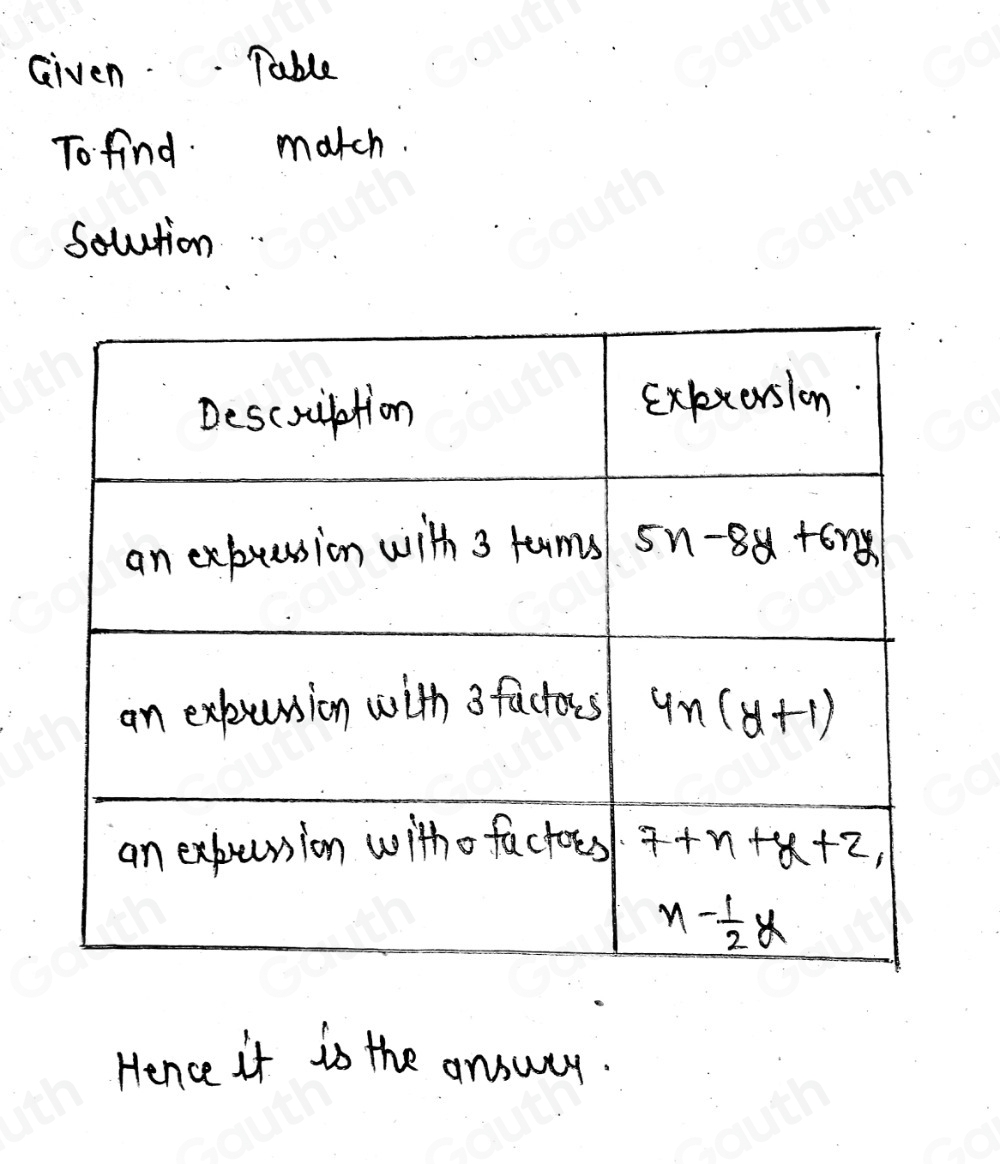 Given . . Table
To find . match .
Solution ..
Description Expression .
an expression with 3 terms 5n - 8y + 6ny
an expression with 3 factors 4n (y+1)
an expression with 0 factors . 7 + n + y + z,
n - 1/2 y
Hence it is the answer .